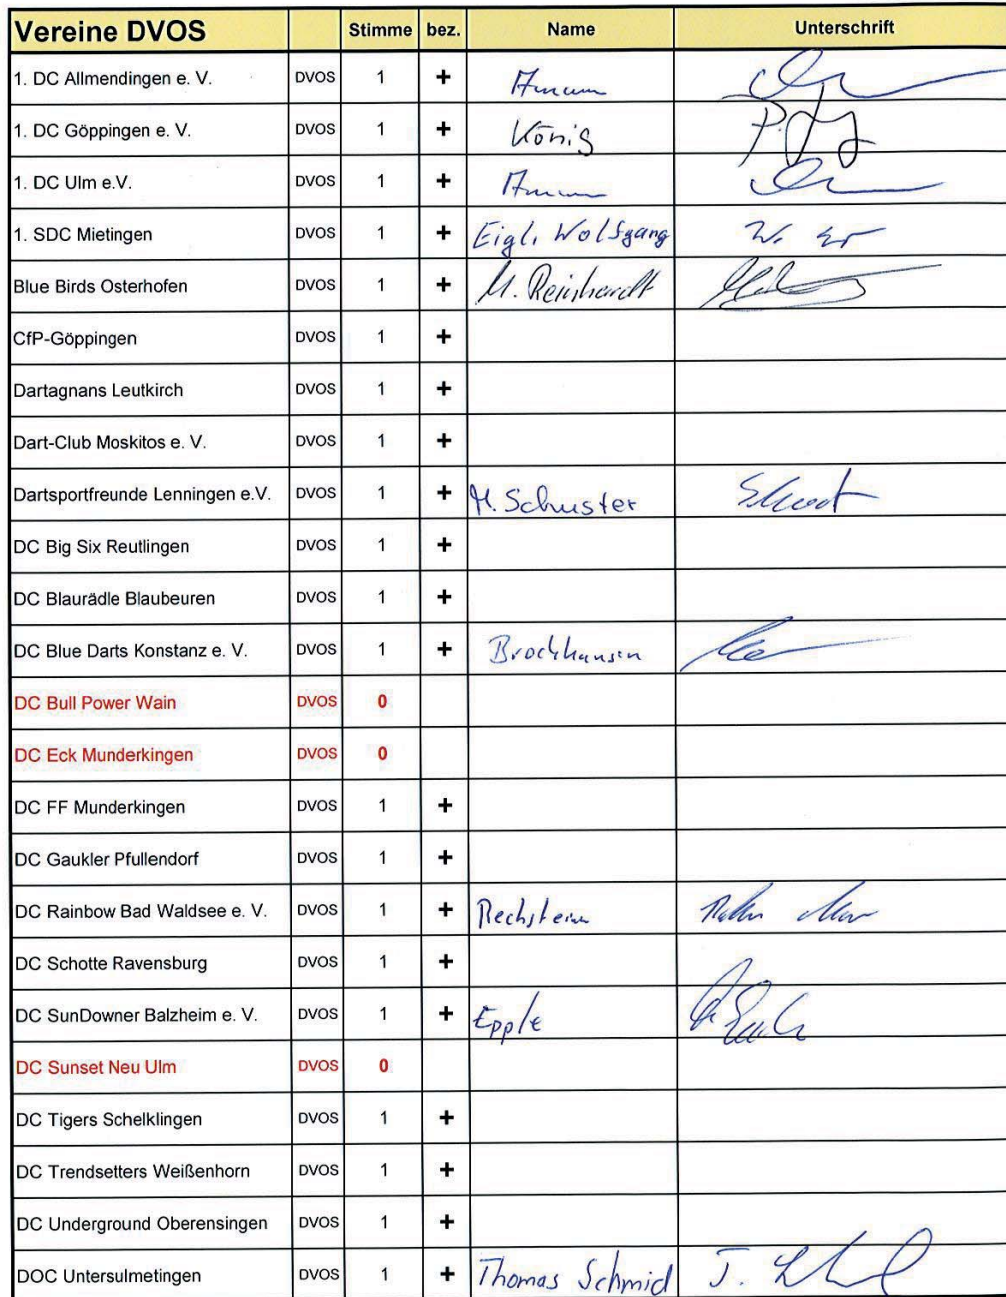 Vereine DVOS Stimme bez. Name Unterschrift
1. DC Allmendingen e. V. DVOS 1 +
1. DC Göppingen e. V. DVOS 1 + König
1. DC Ulm e.V. DVOS 1 +
1. SDC Mietingen DVOS 1 + Eigl, Wolfgang
Blue Birds Osterhofen DVOS 1 + M. Reinhardt
CfP-Göppingen DVOS 1 +
Dartagnans Leutkirch DVOS 1 +
Dart-Club Moskitos e. V. DVOS 1 +
Dartsportfreunde Lenningen e.V. DVOS 1 + M. Schuster
DC Big Six Reutlingen DVOS 1 +
DC Blaurädle Blaubeuren DVOS 1 +
DC Blue Darts Konstanz e. V. DVOS 1 + Brockhausen
DC Bull Power Wain DVOS 0
DC Eck Munderkingen DVOS 0
DC FF Munderkingen DVOS 1 +
DC Gaukler Pfullendorf DVOS 1 +
DC Rainbow Bad Waldsee e. V. DVOS 1 + Rechsteiner
DC Schotte Ravensburg DVOS 1 +
DC SunDowner Balzheim e. V. DVOS 1 + Epple
DC Sunset Neu Ulm DVOS 0
DC Tigers Schelklingen DVOS 1 +
DC Trendsetters Weißenhorn DVOS 1 +
DC Underground Oberensingen DVOS 1 +
DOC Untersulmetingen DVOS 1 + Thomas Schmid